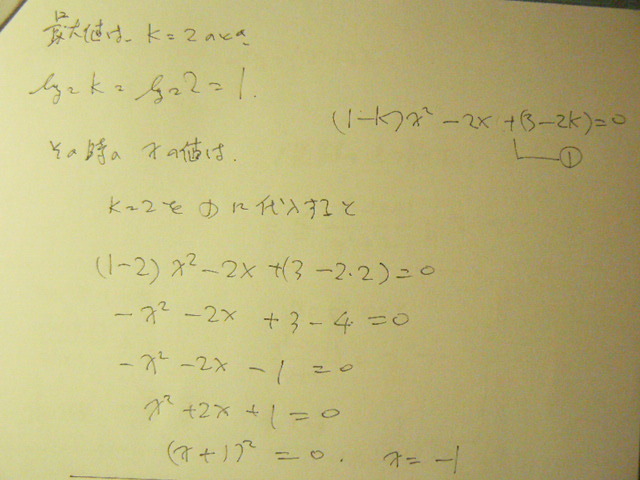 最大値は、k=2のとき
log₂k = log₂2 = 1.
(1-k)x² - 2x + (3-2k) = 0
①
その時の xの値は.
k=2を ①に代入すると
(1-2)x² - 2x + (3-2・2) = 0
-x² - 2x + 3 - 4 = 0
-x² - 2x - 1 = 0
x² + 2x + 1 = 0
(x+1)² = 0. x = -1